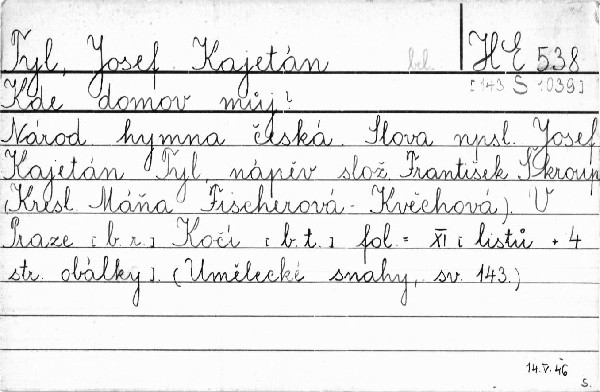 Tyl, Josef Kajetán brl. HE 538
Kde domov můj? [143 S 1039]
Národ. hymna česká. Slova npsl. Josef
Kajetán Tyl, nápěv slož. František Škroup
(Kresl. Máňa Fischerová-Kvěchová). V
Praze [b. r.] Kočí [b. t.] fol. = XI [listů + 4
str. obálky]. (Umělecké snahy, sv. 143.)
14.V.46
S.